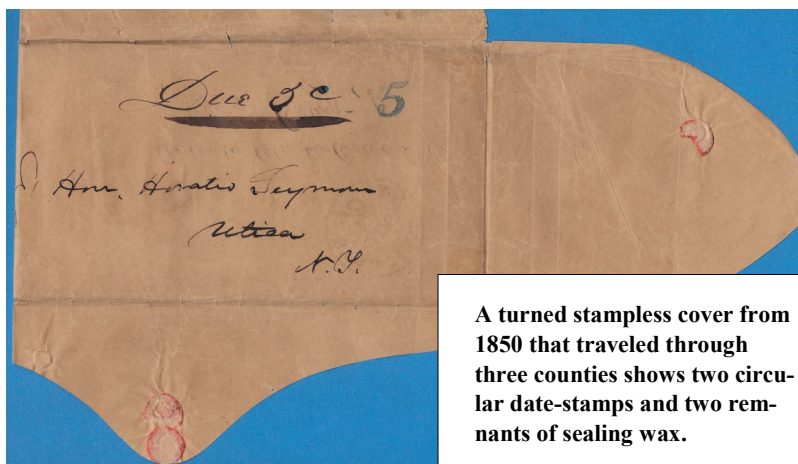 Due 3c 5
Hon. Horatio Seymour
Utica
N.Y.
A turned stampless cover from
1850 that traveled through
three counties shows two circu-
lar date-stamps and two rem-
nants of sealing wax.